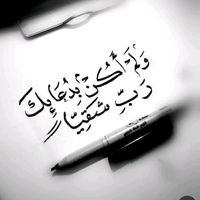 وَلَمْ أَكُنْ بِدُعَائِكَ
رَبِّ شَقِيًّا